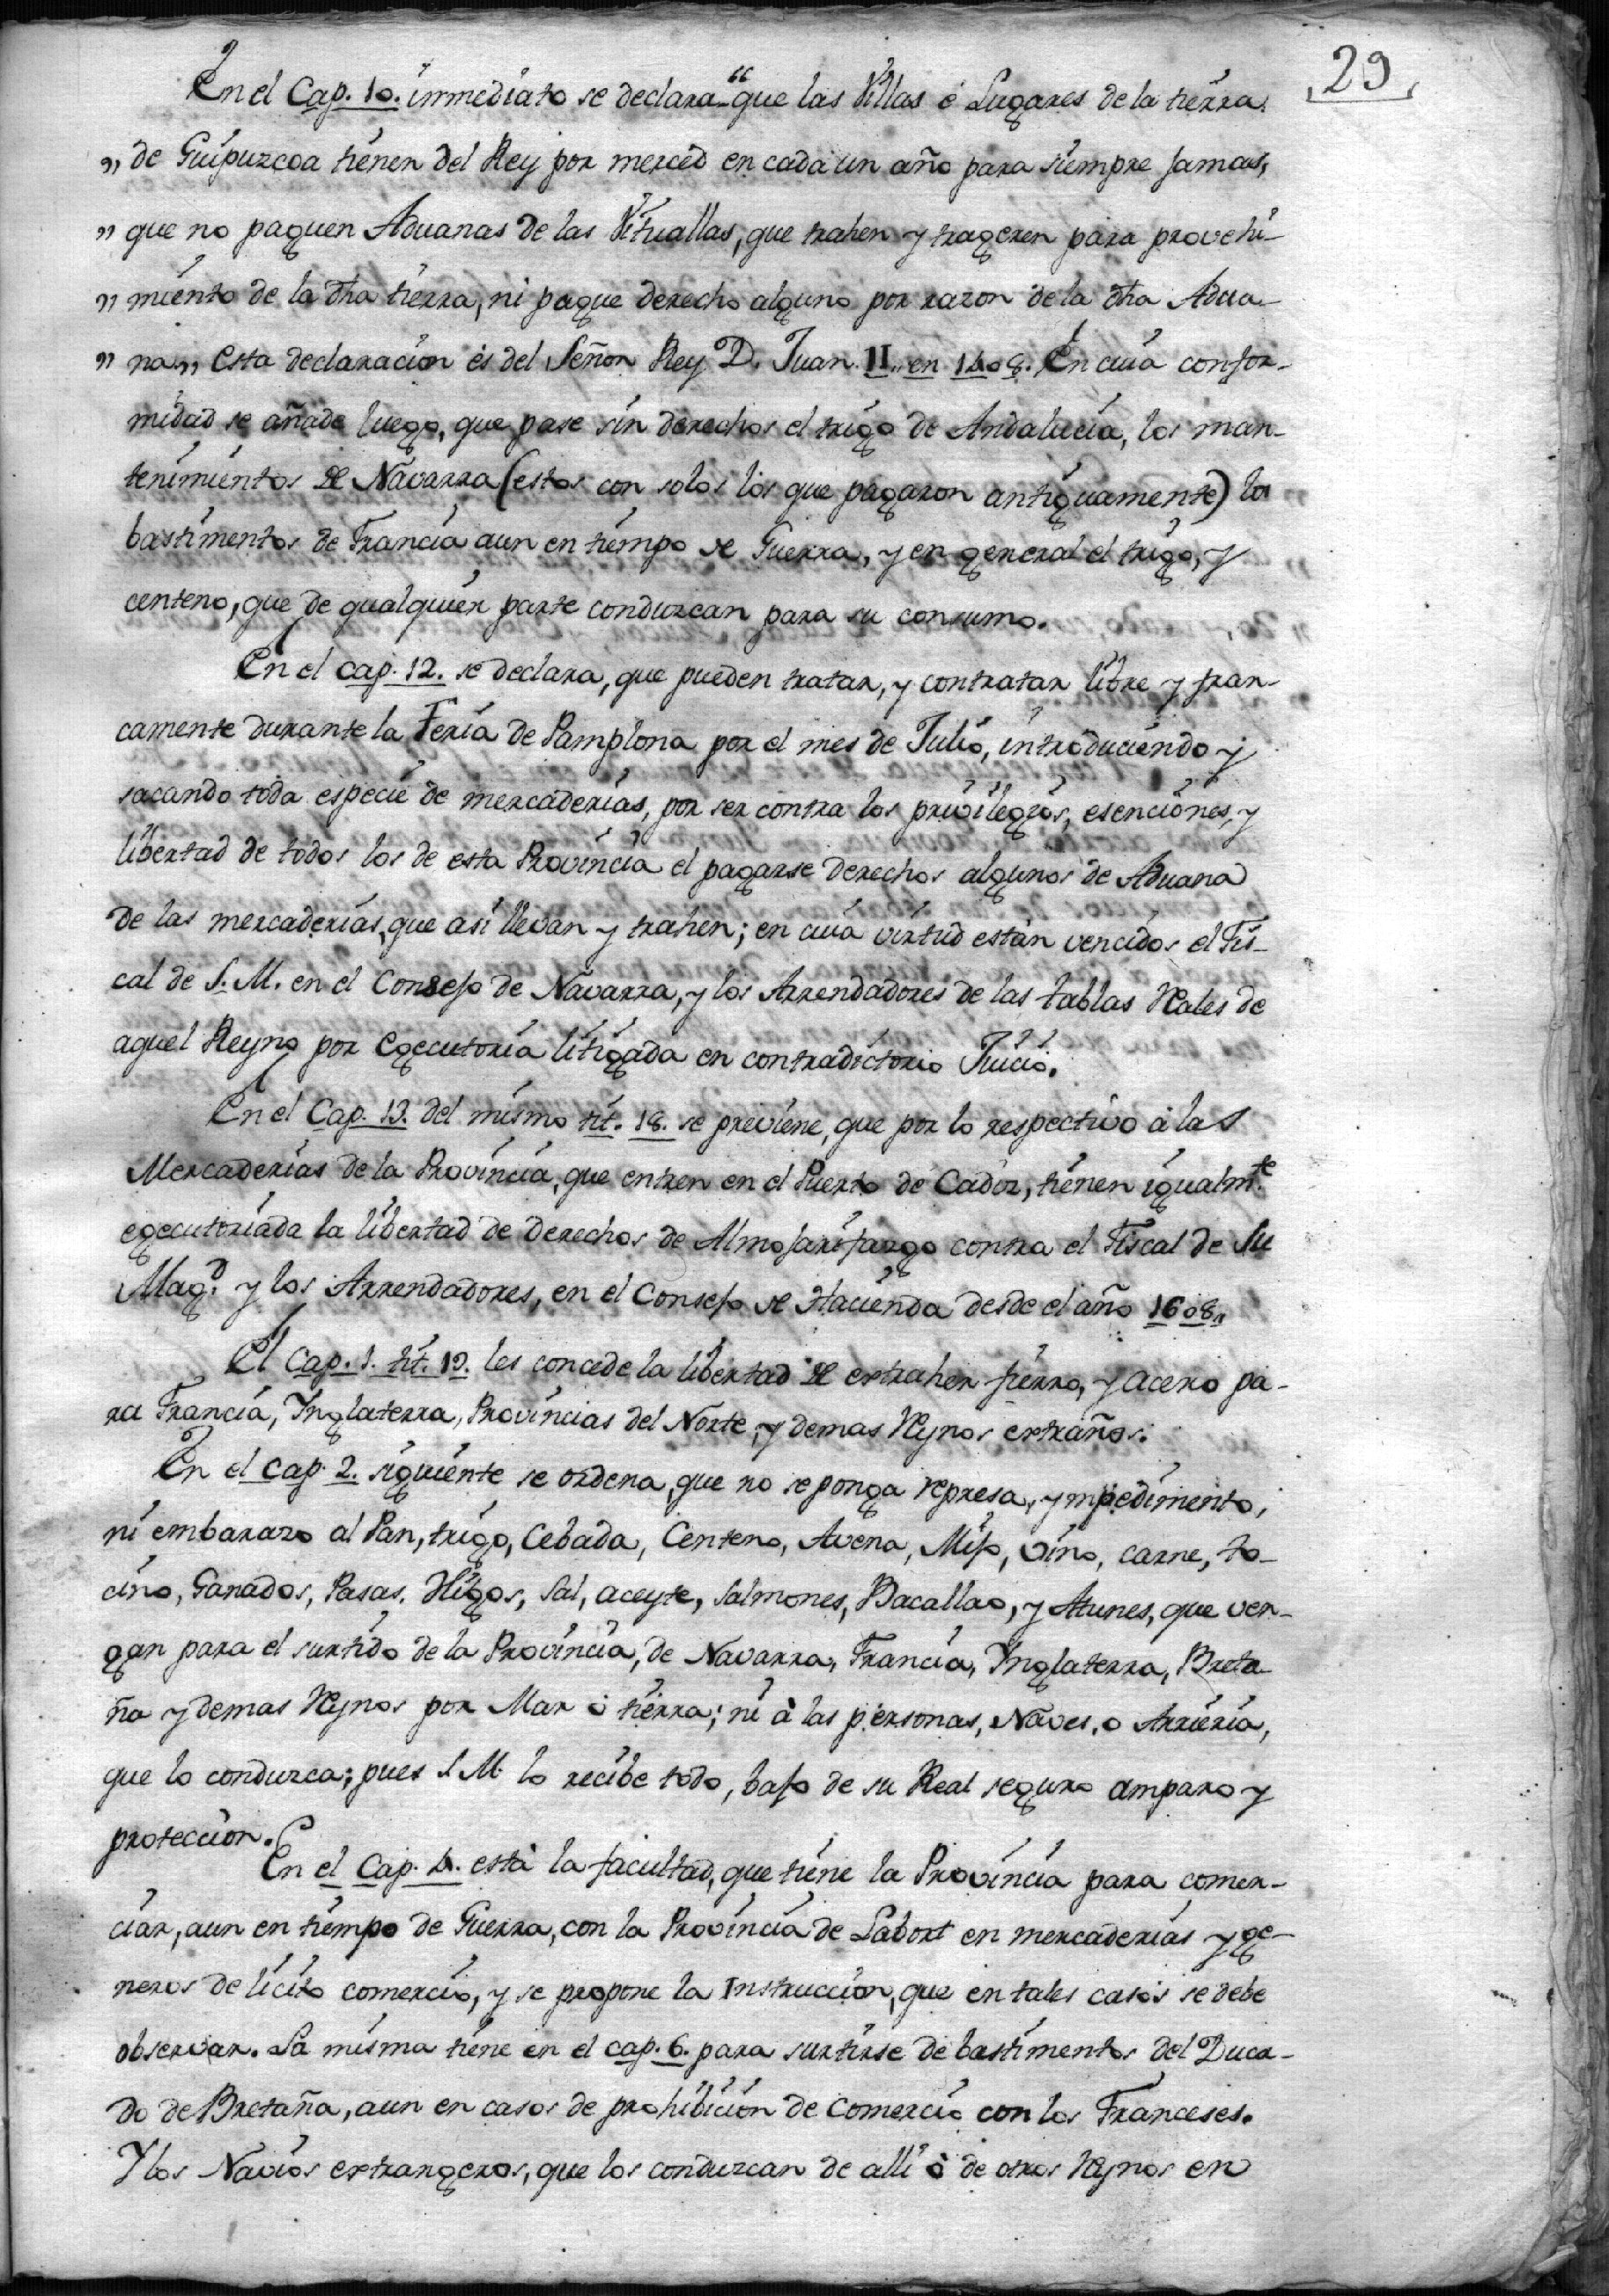 29
En el Cap. 10. inmediato se declara "que las Villas é Lugares de la tierra
" de Guipuzcoa tienen del Rey por merced en cada un año para siempre jamas,
" que no paguen Aduanas de las Vituallas, que trahen y trageren para provehi-
" miento de la dha tierra, ni pague derecho alguno por razon de la dha Adua-
" na" esta declaracion es del Señor Rey D. Juan II. en 1408. En cuia confor-
midad se añade luego, que pase sin derechos el trigo de Andalucia, los man-
tenimientos de Navarra (estos con solos los que pagaron antiguamente) los
bastimentos de Francia aun en tiempo de Guerra, y en general el trigo, y
centeno, que de qualquier parte conduzcan para su consumo.
En el cap. 12. se declara, que pueden tratar, y contratar libre y fran-
camente durante la Feria de Pamplona por el mes de Julio, introduciendo y
sacando toda especie de mercaderias, por ser contra los privilegios, esenciones, y
libertad de todos los de esta Provincia el pagarse derechos algunos de Aduana
de las mercaderias, que asi llevan y trahen; en cuia virtud están vencidos el Fis-
cal de S. M. en el Consejo de Navarra, y los Arrendadores de las tablas Reales de
aquel Reyno por Egecutoria litigada en contradictorio Juicio.
En el Cap. 13. del mismo tit. 18. se previene, que por lo respectivo á las
Mercaderias de la Provincia, que entren en el Puerto de Cadiz, tienen igualmte
egecutoriada la libertad de derechos de Almojarifazgo contra el Fiscal de Su
Magd. y los Arrendadores, en el Consejo de Hacienda desde el año 1608.
El Cap. 1. tit. 19. les concede la libertad de extraher fierro, y acero pa-
ra Francia, Ynglaterra, Provincias del Norte, y demas Reynos extraños.
En el Cap. 2. siguiente se ordena, que no se ponga represa, ympedimento,
ni embarazo al Pan, trigo, Cebada, Centeno, Avena, Mijo, vino, carne, to-
cino, Ganados, Pasas, Higos, Sal, aceyte, Salmones, Bacallao, y Atunes, que ven-
gan para el surtido de la Provincia, de Navarra, Francia, Ynglaterra, Breta
ña y demas Reynos por Mar ó tierra; ni à las personas, Naves, o Arrieria,
que lo conduzca; pues S M. lo recibe todo, bajo de su Real seguro amparo y
proteccion.
En el Cap. 4. está la facultad, que tiene la Provincia para comer-
ciar, aun en tiempo de Guerra, con la Provincia de Labort en mercaderias y ge-
neros de licito comercio, y se propone la Instruccion, que en tales casos se debe
observar. La misma tiene en el cap. 6. para surtirse de bastimentos del Duca-
do de Bretaña, aun en casos de prohibicion de Comercio con los Franceses.
Y los Navios extrangeros, que los conduzcan de alli ó de otros Reynos en